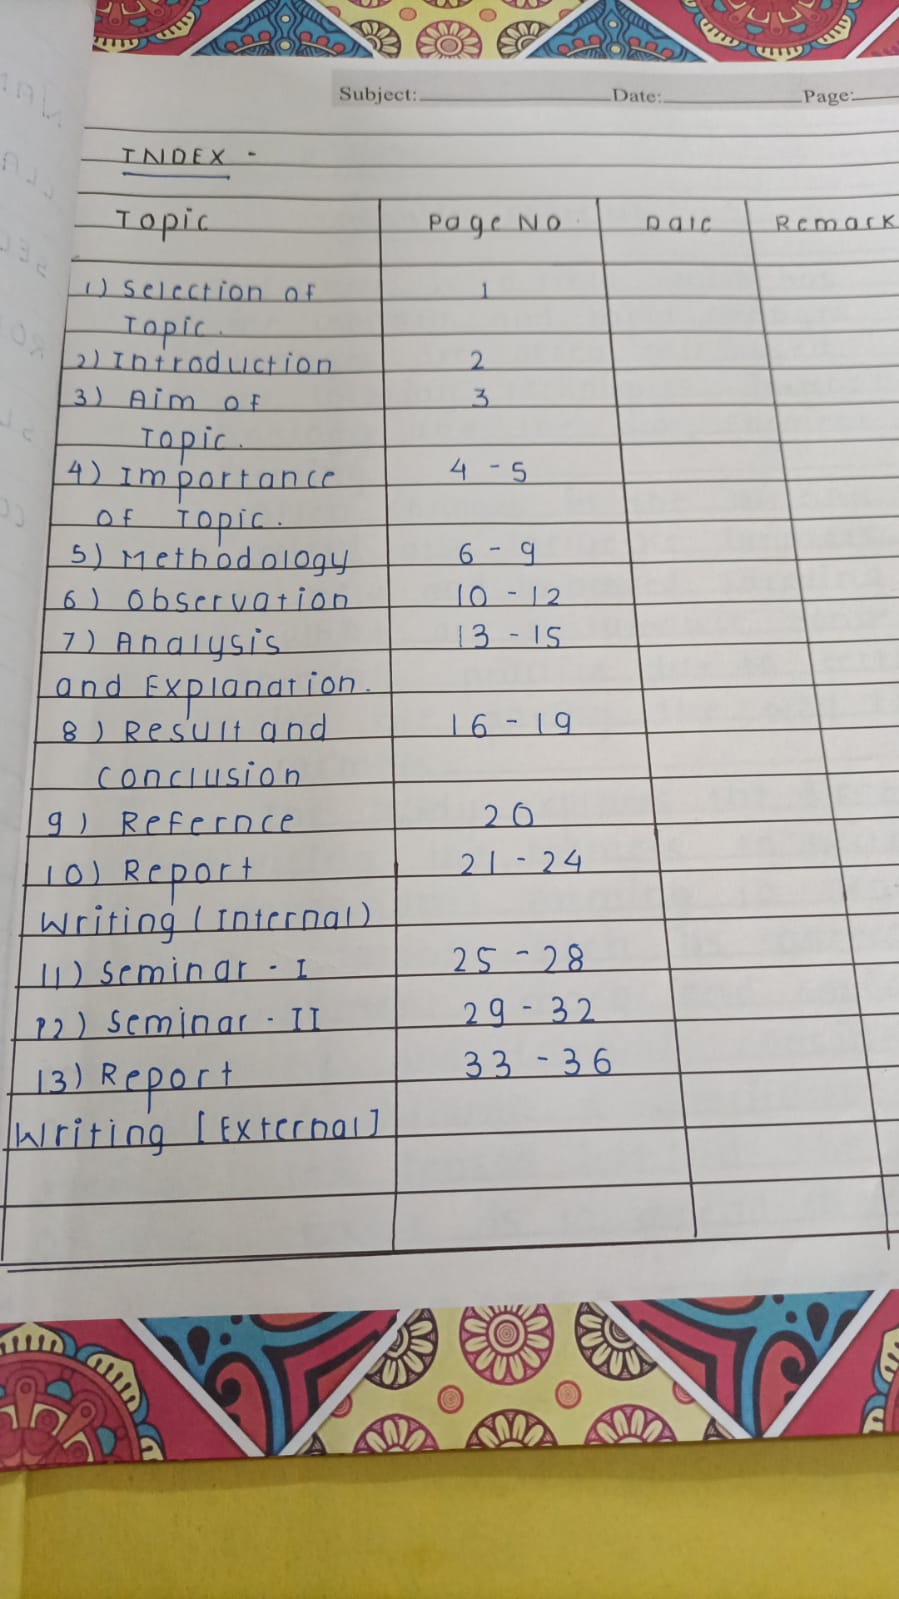 Subject: Date: Page:
INDEX -
Topic Page No. Date Remark
1) Selection of 1
Topic.
2) Introduction 2
3) Aim of 3
Topic.
4) Importance 4 - 5
of Topic.
5) Methodology 6 - 9
6) Observation 10 - 12
7) Analysis 13 - 15
and Explanation.
8) Result and 16 - 19
conclusion
9) Refernce 20
10) Report 21 - 24
Writing (Internal)
11) Seminar - I 25 - 28
12) Seminar - II 29 - 32
13) Report 33 - 36
Writing [External]